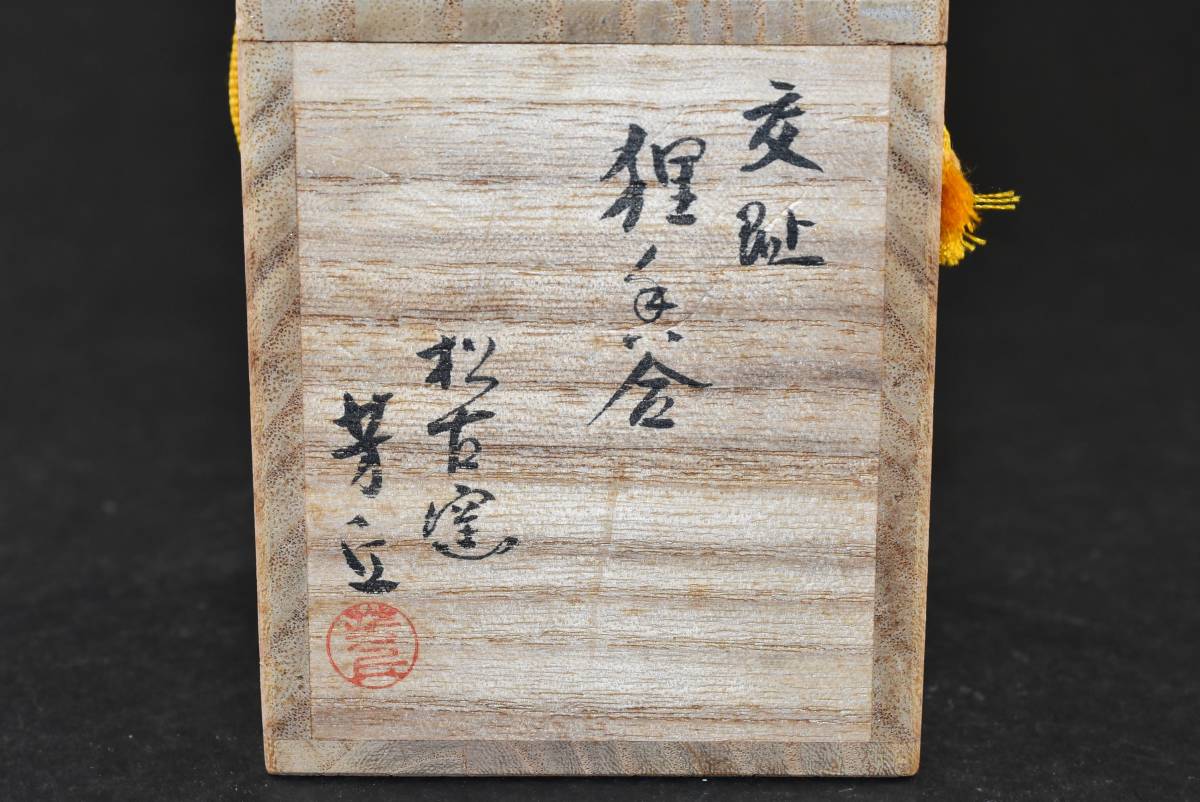 交趾
狸香合
松古窯
芳丘